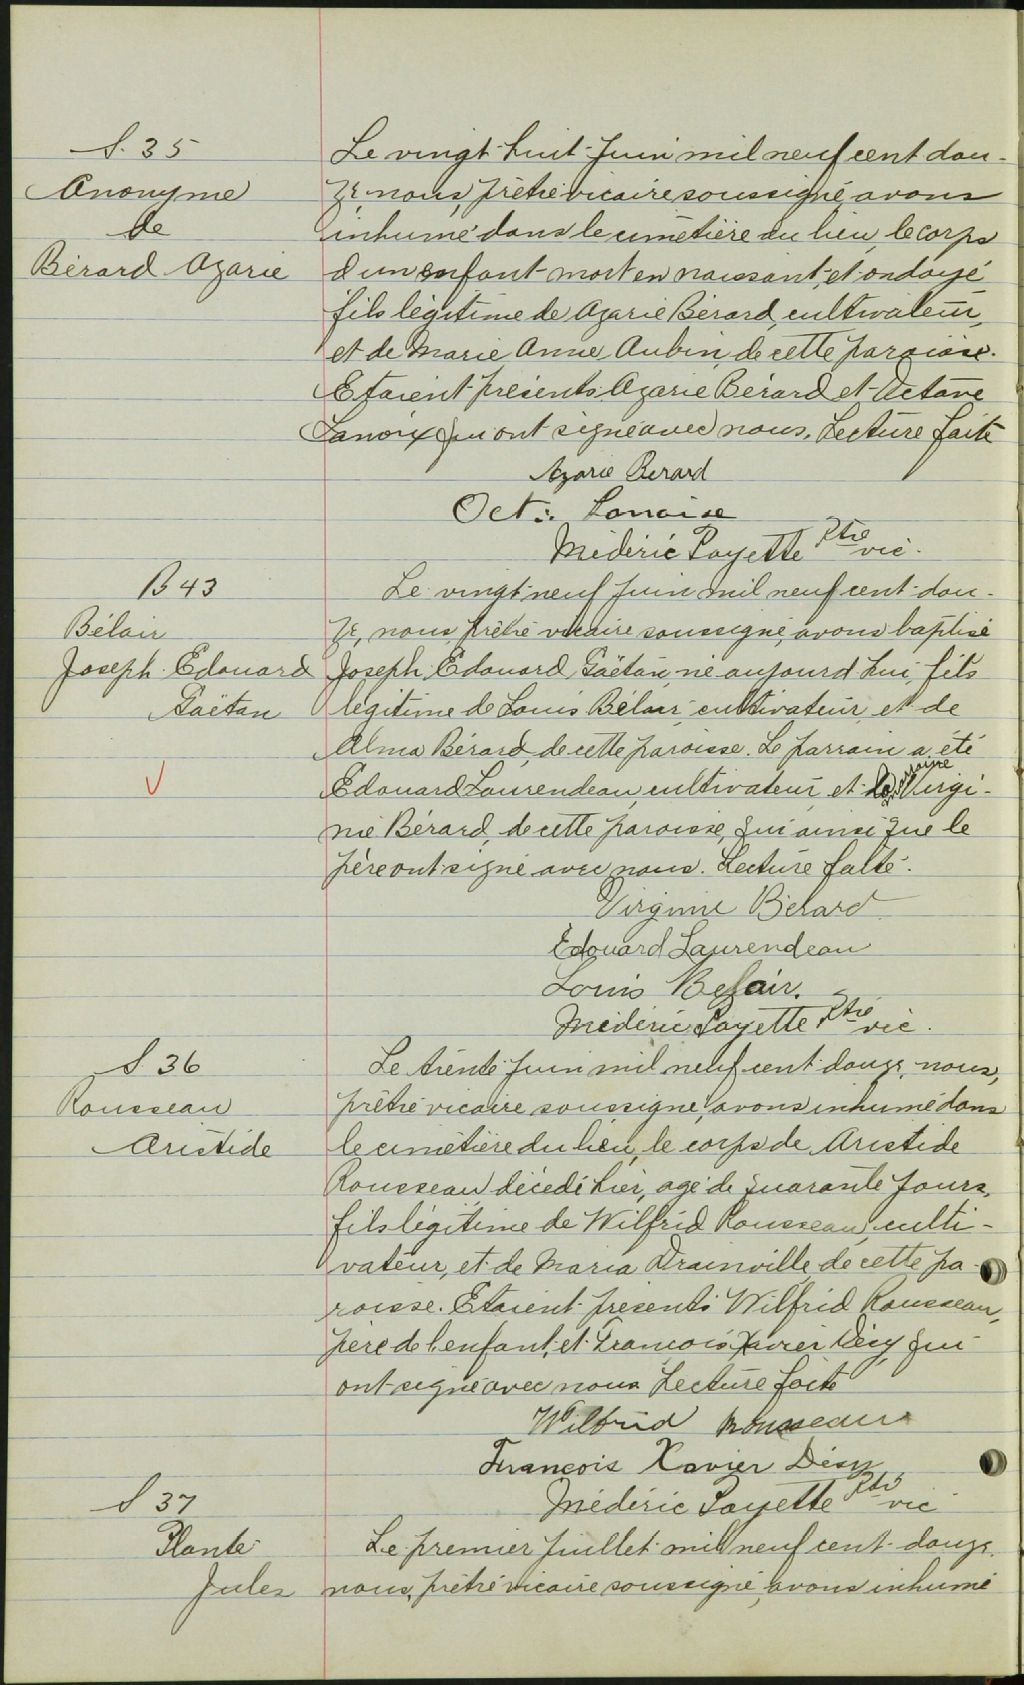 S. 35
Anonyme
de
Bérard Azarie
Le vingt-huit Juin mil neuf cent dou-
ze, nous, prêtre vicaire soussigné, avons
inhumé dans le cimetière du lieu, le corps
d'un enfant mort en naissant, et ondoyé
fils légitime de Azarie Bérard, cultivateur,
et de Marie Anne Aubin, de cette paroisse.
Etaient présents Azarie Bérard et Octave
Lanoix qui ont signé avec nous. Lecture faite
Azarie Berard
Oct: Lanoise
Médéric Payette Ptre vic.
B 43
Bélair
Joseph Edouard
Gaëtan
Le vingt-neuf Juin mil neuf cent dou-
ze, nous, prêtre vicaire soussigné, avons baptisé
Joseph Edouard Gaëtan, né aujourd'hui, fils
légitime de Louis Bélair, cultivateur, et de
Alma Bérard, de cette paroisse. Le parrain a été
Edouard Laurendeau, cultivateur, et la marraine Virgi-
nie Bérard, de cette paroisse, qui ainsi que le
père ont signé avec nous. Lecture faite.
Virginie Bérard
Edouard Laurendeau
Louis Belair.
Médéric Payette Ptre vic.
S 36
Rousseau
Aristide
Le trente Juin mil neuf cent douze, nous,
prêtre vicaire soussigné, avons inhumé dans
le cimetière du lieu, le corps de Aristide
Rousseau, décédé hier, agé de quarante jours,
fils légitime de Wilfrid Rousseau, culti-
vateur, et de Maria Drainville, de cette pa-
roisse. Etaient présents Wilfrid Rousseau,
père de l'enfant, et François Xavier Désy, qui
ont signé avec nous. Lecture faite
Wilfrid Rousseau
François Xavier Désy
Médéric Payette Ptre vic
S 37
Plante
Jules
Le premier juillet mil neuf cent douze,
nous, prêtre vicaire soussigné, avons inhumé